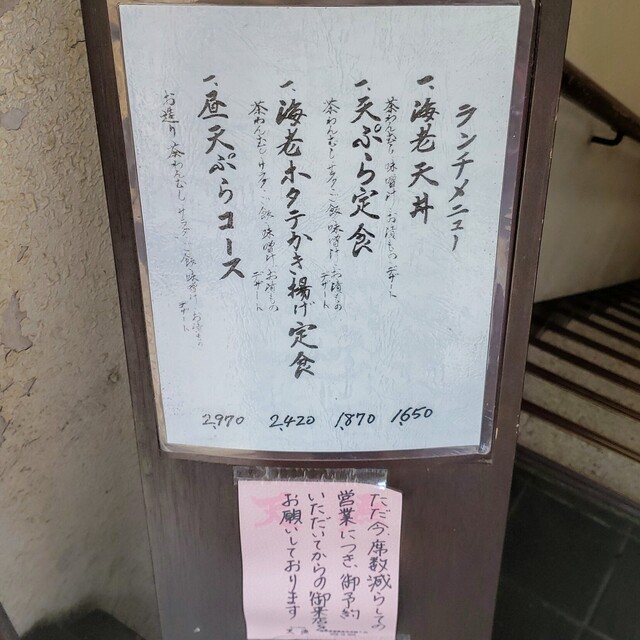 ランチメニュー
一、海老天丼
茶わんむし 味噌汁 お漬もの デザート
1650
一、天ぷら定食
茶わんむし サラダ ご飯 味噌汁 お漬もの
デザート
1870
一、海老ホタテかき揚げ定食
茶わんむし サラダ ご飯 味噌汁 お漬もの
デザート
2420
一、昼天ぷらコース
お造り 茶わんむし サラダ ご飯 味噌汁 お漬もの
デザート
2970
ただ今席数減らして
営業につき、御予約
いただいてからの御来店
お願いしております